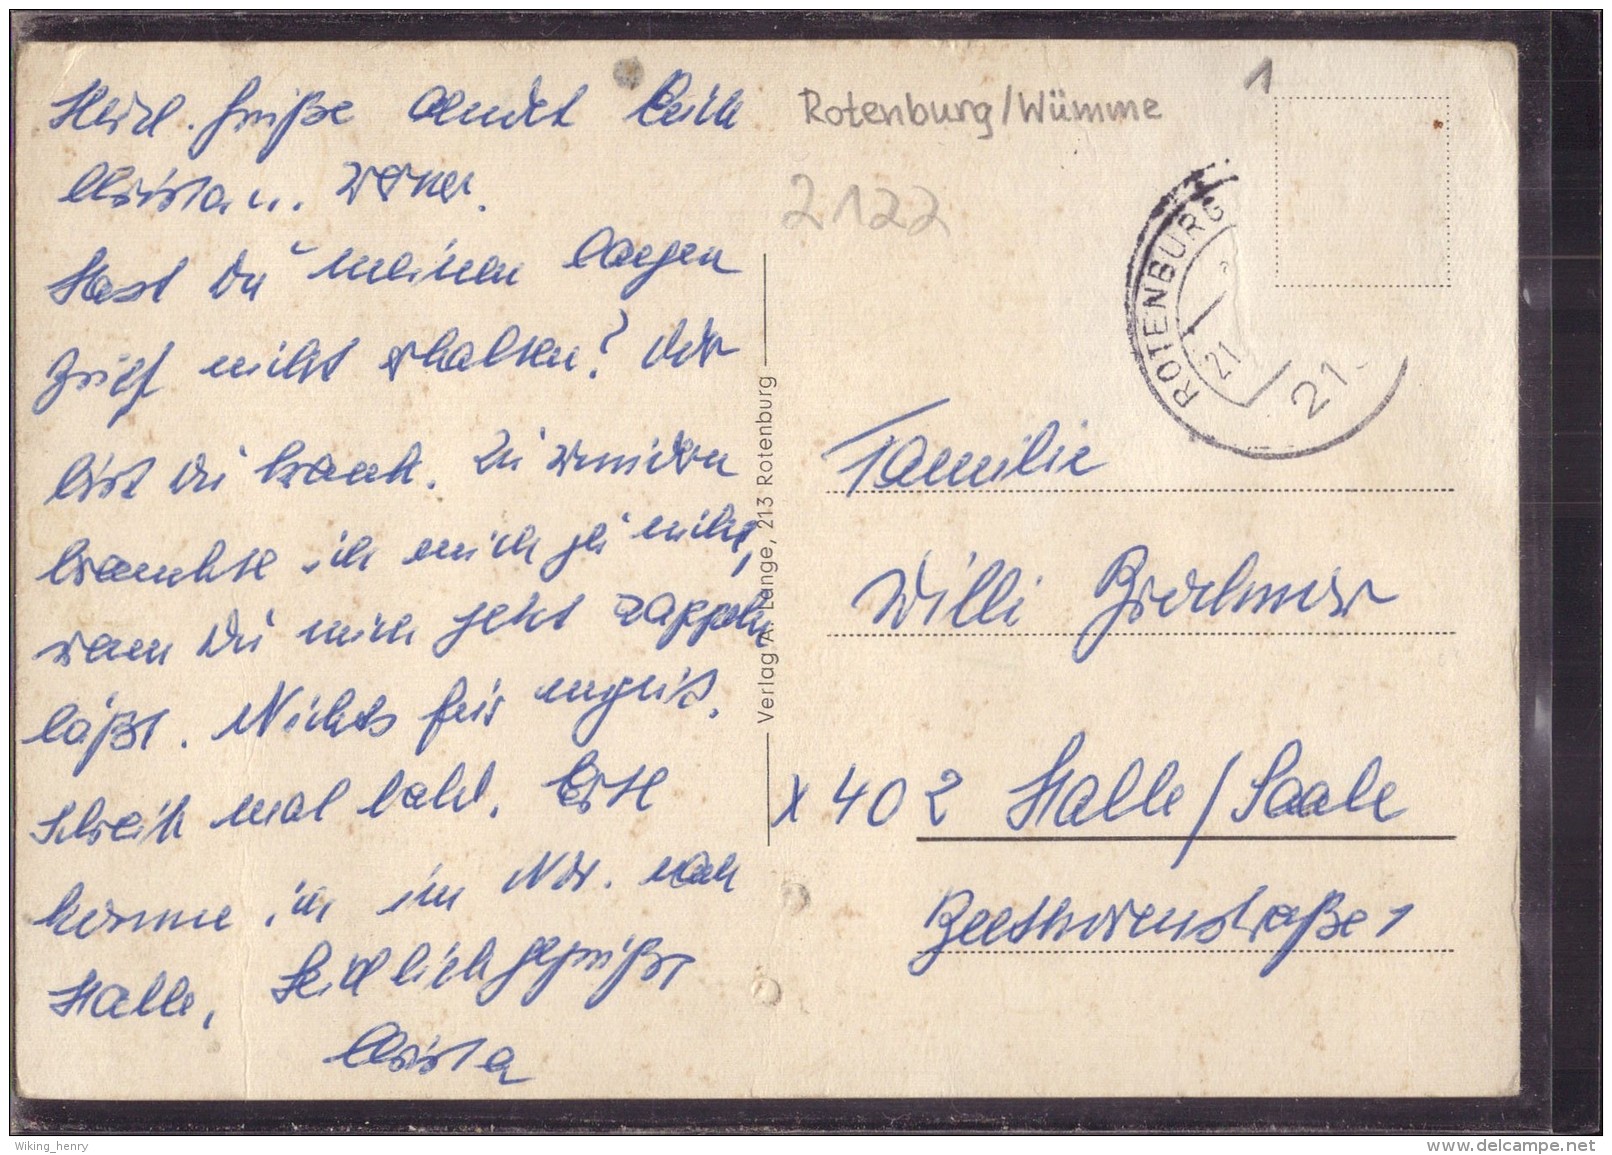 Herzl. Grüße sendet Euch
Christa u. Werner.
Hast Du meinen langen
Brief nicht erhalten? Oder
bist Du krank. Zu wundern
brauchte ich mich ja nicht,
wenn Du mich jetzt zappeln
läßt. Nichts für ungut.
Schreib mal bald. Erst
komme ich im Nov. nach
Halle. Herzlich gegrüßt
Christa
Verlag A. Lange, 213 Rotenburg
Rotenburg/Wümme
1
2122
ROTENBURG
21
21.
Familie
Willi
X 402 Halle/Saale
Beethovenstraße 1
Wiking_henry
www.delcampe.net